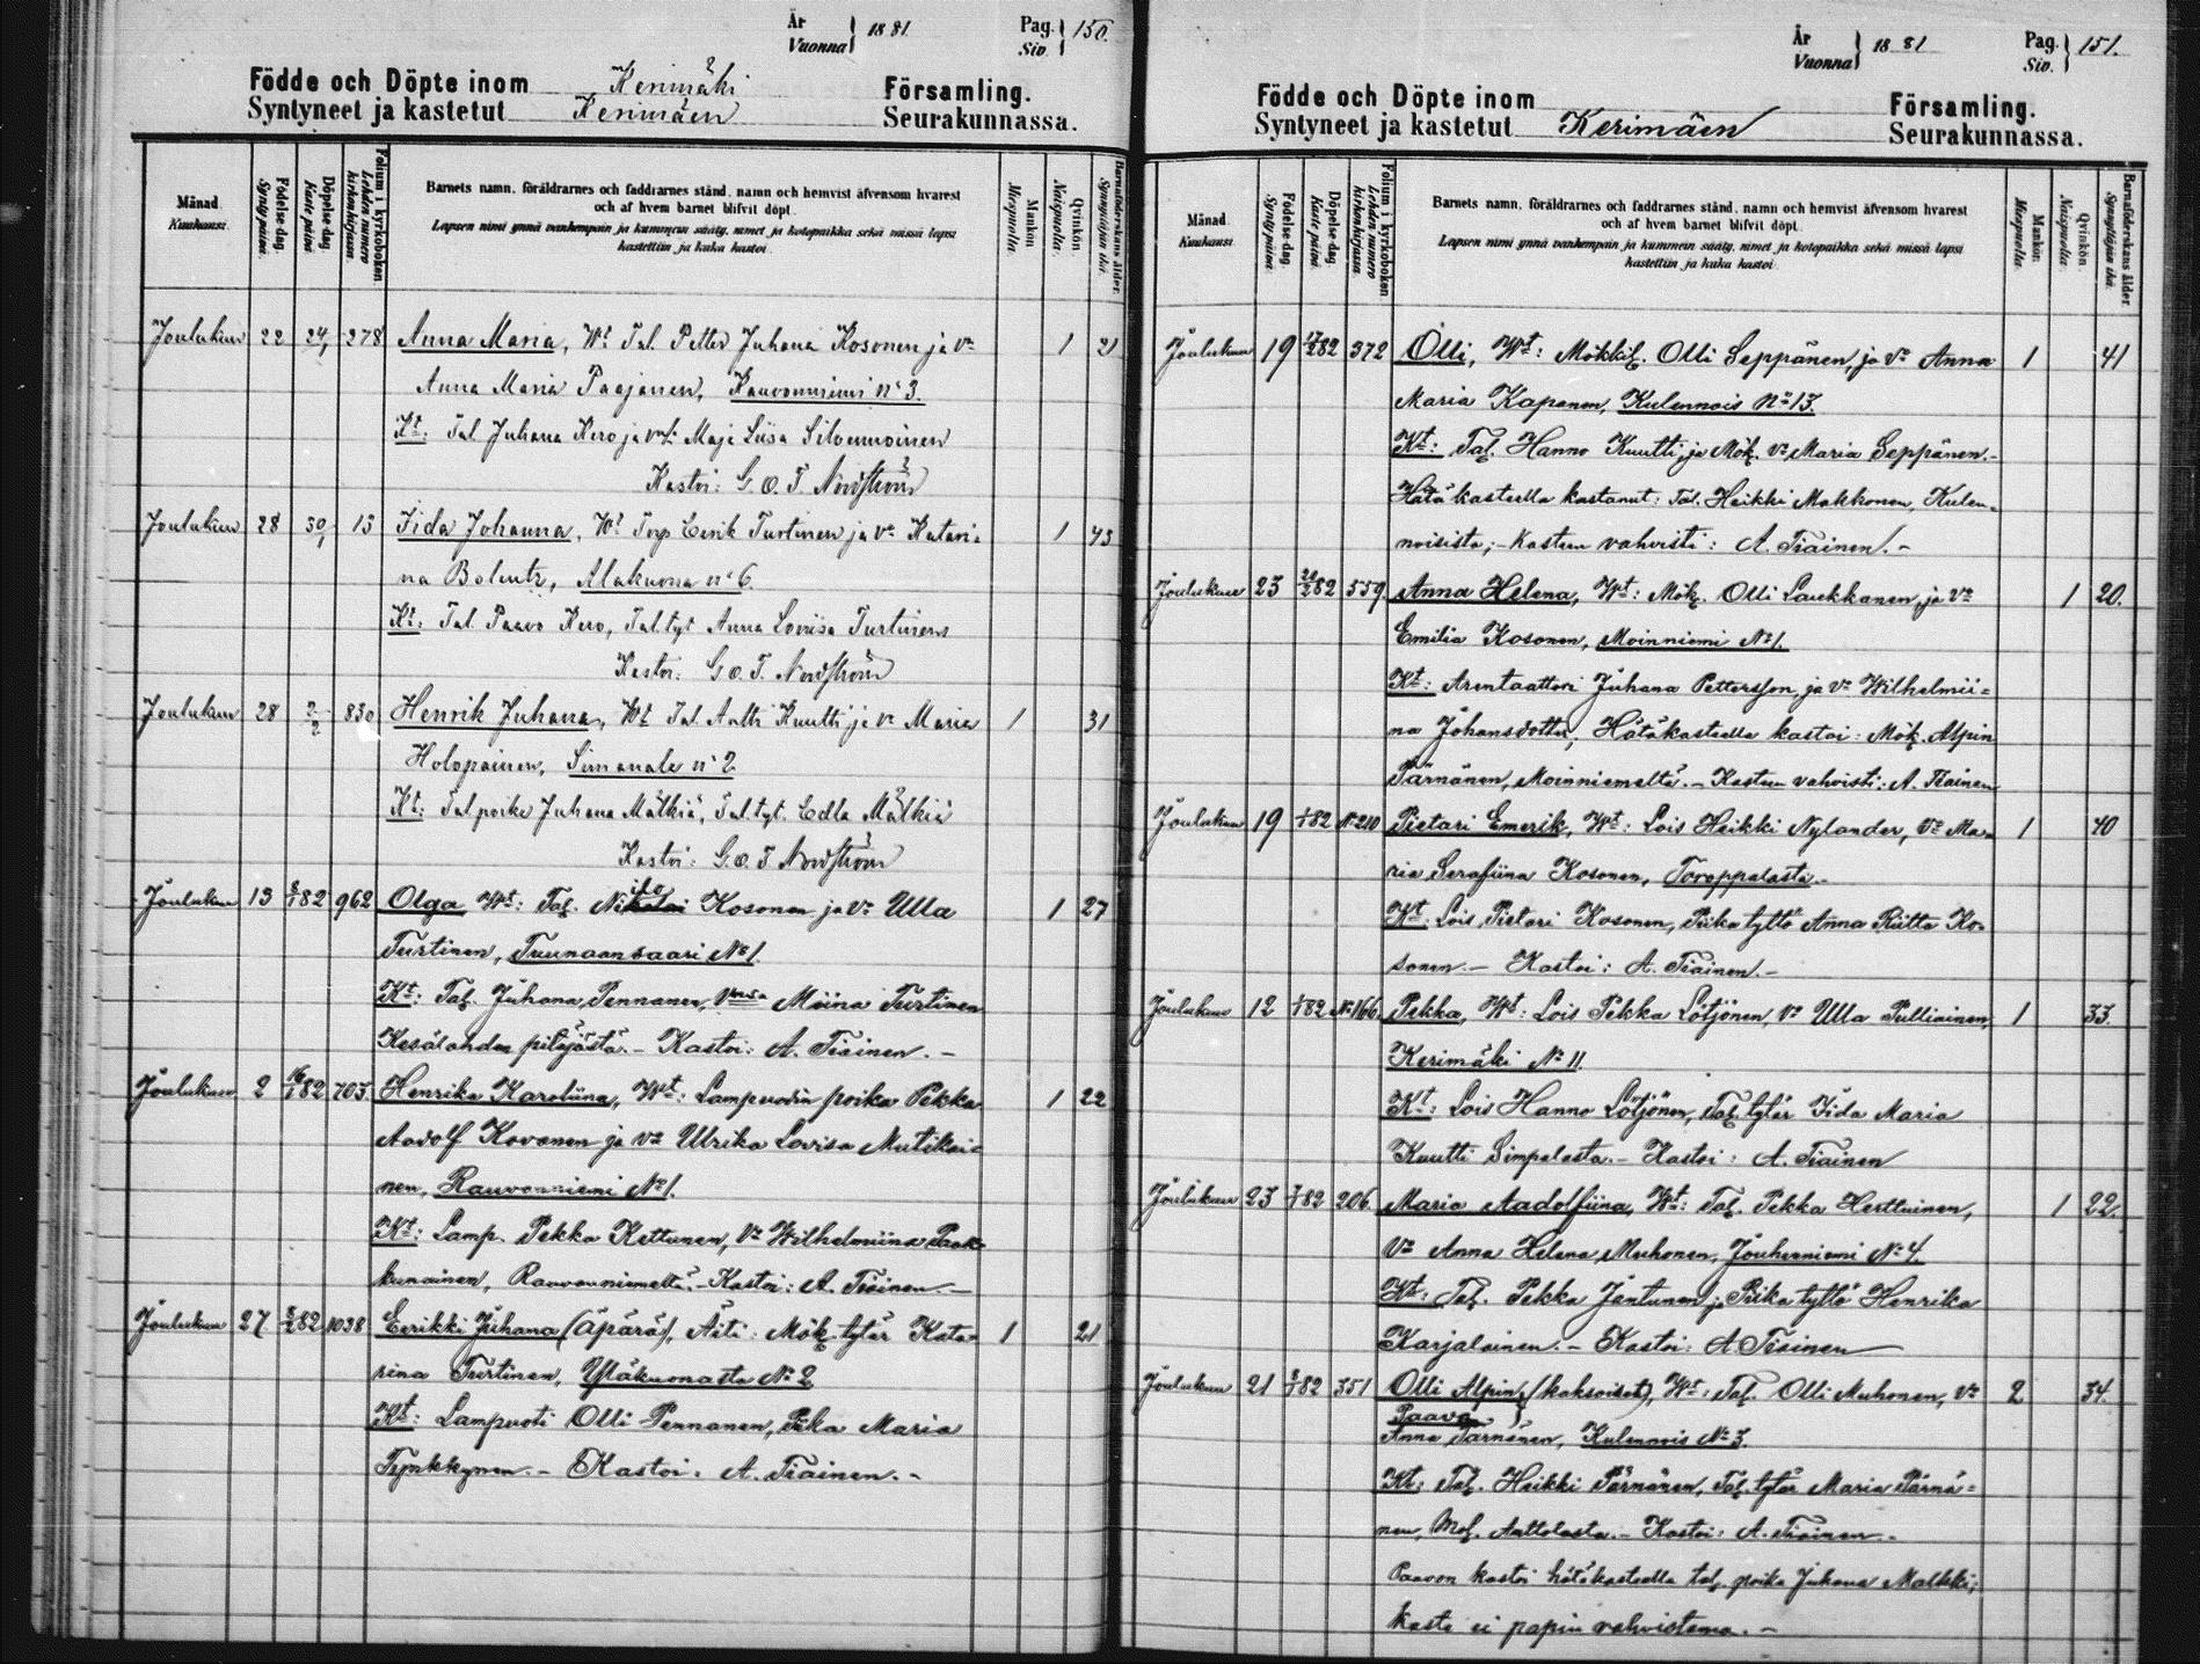 År
Vuonna 1881.
Pag.
Siv. 150.
Födde och Döpte inom Kerimäki Församling.
Syntyneet ja kastetut Kerimäen Seurakunnassa.
Månad Kuukausi
Födelse-dag. Synty päivä.
Döpelse-dag. Kaste päivä.
Folium i kyrkoboken. Lehden numero kirkonkirjassa
Barnets namn, föräldrarnes och faddrarnes stånd, namn och hemvist äfvensom hvarest
och af hvem barnet blifvit döpt.
Lapsen nimi ynnä vanhempain ja kummein sääty, nimet ja kotopaikka sekä missä lapsi
kastettiin ja kuka kastoi.
Mankön Miespuolia.
Qvinkön. Naispuolia.
Barnaföderskans ålder. Synnyttäjän ikä.
Joulukuu 22 24/1 278 Anna Maria, Wt Tal. Petter Juhana Kosonen ja vo 1 21
Anna Maria Paajanen, Rauvonniemi No 3.
Kt: Tal Juhana Kero ja Maja Liisa Silvennoinen
Kastoi: G. O. T. Nordström
Joulukuu 28 30/1 13 Iida Johanna, Wt Torp Eerik Turtinen ja vo Katari- 1 43
na Boluntz, Alakuona No 6.
Kt: Tal. Paavo Kero, Tal. tyt Anna Loviisa Turtinen
Kastoi: G. O. T. Nordström
Joulukuu 28 2/2 830 Henrik Juhana, Wt Tal. Antti Kuutti ja vo Maria 1 31
Holopainen, Simanala No 2
Kt: Tal poika Juhana Mälkiä, Tal. tyt. Edla Mälkiä
Kastoi: G. O. T Nordström
Joulukuu 13 8/1 82 962 Olga Wt: Tal. Nikolai Kosonen ja vo Ulla 1 27
Turtinen, Tuunaansaari No 1.
Kt: Tal. Juhana Pennanen, Miina Turtinen
Kesälahden pitäjästä. - Kastoi: A. Tiainen. -
Joulukuu 2 16/1 82 703 Henrika Karoliina, Wt: Lampuodin poika Pekka 1 22
Aadolf Kovanen ja vo Ulrika Lovisa Mutikai-
nen, Rauvonniemi No 1.
Kt: Lamp. Pekka Kettunen, Vo Wilhelmiina Paak-
kunainen, Rauvonniemeltä. - Kastoi: A. Tiainen. -
Joulukuu 27 3/2 82 1038 Eerikki Juhana (äpärä), Äiti: Mök. tytär Kata- 1 21
rina Turtinen, Yläkuonasta No 2
Kt: Lampuoti Olli Pennanen, Piika Maria
Tynkkynen. - Kastoi: A. Tiainen. -
År
Vuonna 1881
Pag.
Siv. 151.
Födde och Döpte inom Församling.
Syntyneet ja kastetut Kerimäen Seurakunnassa.
Månad Kuukausi
Födelse-dag. Synty päivä.
Döpelse-dag. Kaste päivä.
Folium i kyrkoboken Lehden numero kirkonkirjassa
Barnets namn, föräldrarnes och faddrarnes stånd, namn och hemvist äfvensom hvarest
och af hvem barnet blifvit döpt.
Lapsen nimi ynnä vanhempain ja kummein sääty, nimet ja kotopaikka sekä missä lapsi
kastettiin ja kuka kastoi
Mankön. Miespuolia.
Qvinkön. Naispuolia.
Barnaföderskans ålder. Synnyttäjän ikä.
Joulukuu 19 82 372 Olli, Wt: Mökkil. Olli Seppänen, ja Vo Anna 1 41
Maria Kapanen, Kulennois No 13.
Kt: Tal. Hanno Kuutti, ja Mök. Vo Maria Seppänen. -
Hätäkasteella kastanut: Tal. Heikki Makkonen, Kulen-
noisista; - Kasteen vahvisti: A. Tiainen. -
Joulukuu 23 21/2 82 559 Anna Helena, Wt: Mök. Olli Laukkanen, ja Vo 1 20.
Emilia Kosonen, Moinniemi No 1.
Kt: Arentaattori Juhana Pettersson, ja Vo Wilhelmii-
na Johansdotter, Hätäkasteella kastoi: Mök. Alpin
Pärnänen, Moinniemeltä. - Kasteen vahvisti: A. Tiainen
Joulukuu 19 1/1 82 No 210 Pietari Emerik, Wt: Lois Heikki Nylander, Vo Ma- 1 40
ria Serafiina Kosonen, Toroppalasta. -
Kt: Lois Pietari Kosonen, Piika tyttö Anna Riitta Ko-
sonen. - Kastoi: A. Tiainen. -
Joulukuu 12 1/1 82 No 166. Pekka, Wt: Lois Pekka Lötjönen, Vo Ulla Pulliainen, 1 33.
Kerimäki No 11.
Kt: Lois Hanno Lötjönen, Tal. tytär Iida Maria
Kuutti Simpalasta. - Kastoi: A. Tiainen
Joulukuu 23 7/1 82 206. Maria Aadolfiina, Wt: Tal. Pekka Herttuinen, 1 22.
Vo Anna Helena Muhonen, Jouhenniemi No 4.
Kt: Tal. Pekka Jantunen ja Piika tyttö Henrika
Karjalainen. - Kastoi: A. Tiainen
Joulukuu 21 8/1 82 351 Olli Alpin, (kaksoiset), Wt: Tal. Olli Muhonen, Vo 2 34.
Paavo
Anna Pärnänen, Kulennois No 3.
Kt: Tal. Heikki Pärnänen, Tal. tytär Maria Pärnä-
nen, Anttolasta. - Kastoi: A. Tiainen. -
Paavon kastoi hätäkasteella tal. poika Juhana Malkki;
kaste ei papin vahvistama. -